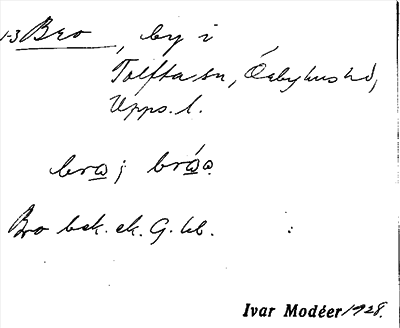 1-3 Bro, by i
Tolfta sn, Örbyhus hd,
Upps. l.
bro ; bróo
Bro bsk. ek. G. kb.
Ivar Modéer 1928.